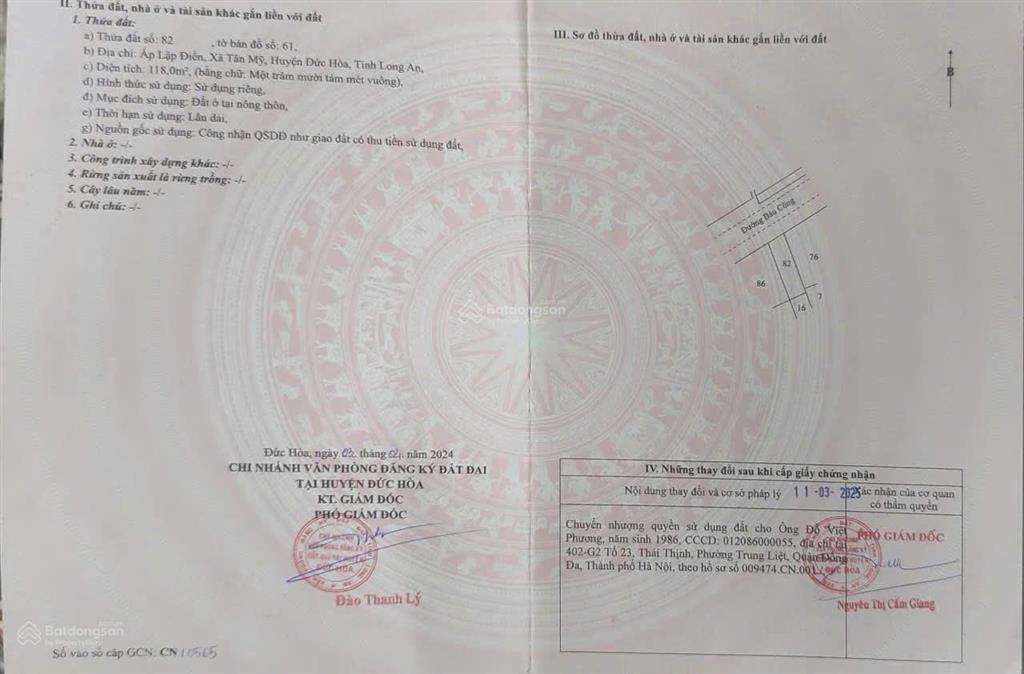 II. Thửa đất, nhà ở và tài sản khác gắn liền với đất
1. Thửa đất:
a) Thửa đất số: 82 , tờ bản đồ số: 61,
b) Địa chỉ: Ấp Lập Điền, Xã Tân Mỹ, Huyện Đức Hòa, Tỉnh Long An,
c) Diện tích: 118,0m², (bằng chữ: Một trăm mười tám mét vuông),
d) Hình thức sử dụng: Sử dụng riêng,
đ) Mục đích sử dụng: Đất ở tại nông thôn,
e) Thời hạn sử dụng: Lâu dài,
g) Nguồn gốc sử dụng: Công nhận QSDĐ như giao đất có thu tiền sử dụng đất,
2. Nhà ở: -/-
3. Công trình xây dựng khác: -/-
4. Rừng sản xuất là rừng trồng: -/-
5. Cây lâu năm: -/-
6. Ghi chú: -/-
Đức Hòa, ngày 02 tháng 01 năm 2024
CHI NHÁNH VĂN PHÒNG ĐĂNG KÝ ĐẤT ĐAI
TẠI HUYỆN ĐỨC HÒA
KT. GIÁM ĐỐC
PHÓ GIÁM ĐỐC
Đào Thanh Lý
Số vào sổ cấp GCN: CN 10565
III. Sơ đồ thửa đất, nhà ở và tài sản khác gắn liền với đất
B
Đường Bàu Công
82
76
86
7
16
Batdongsan
IV. Những thay đổi sau khi cấp giấy chứng nhận
Nội dung thay đổi và cơ sở pháp lý
11-03-2025
Xác nhận của cơ quan
có thẩm quyền
Chuyển nhượng quyền sử dụng đất cho Ông Đỗ Việt
Phương, năm sinh 1986, CCCD: 012086000055, địa chỉ tại
402-G2 Tổ 23, Thái Thịnh, Phường Trung Liệt, Quận Đống
Đa, Thành phố Hà Nội, theo hồ sơ số 009474.CN.001./.
PHÓ GIÁM ĐỐC
ĐỨC HÒA
Nguyễn Thị Cẩm Giang
Batdongsan